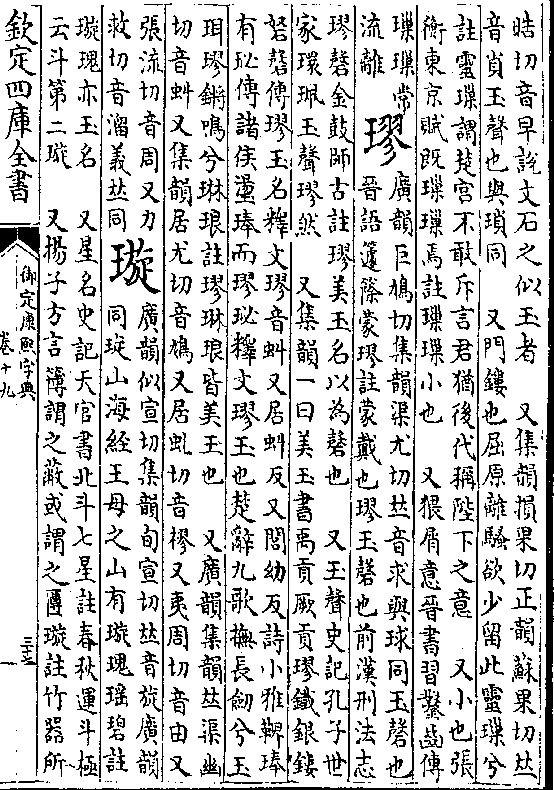 晧切音早說文石之似玉者　又集韻損果切正韻蘇果切𠀤
音𧴪玉聲也與瑣同　又門鏤也屈原離騷欲少留此靈璅兮
註靈璅謂楚宫不敢斥言君猶後代稱陛下之意　又小也張
衡東京賦既璅璅焉註璅璅小也　又猥屑意晉書習鑿齒傳
璅璅常
流離
璆
廣韻巨鳩切集韻渠尤切𠀤音求與球同玉磬也
晉語籧篨蒙璆註蒙戴也璆玉磬也前漢刑法志
璆磬金鼓師古註璆美玉名以為磬也　又玉聲史記孔子世
家環珮玉聲璆然　又集韻一曰美玉書禹貢厥貢璆鐵銀鏤
砮磬傳璆玉名釋文璆音蚪又居蚪反又閭幼反詩小雅鞞琫
有珌傳諸侯璗琫而璆珌釋文璆玉也楚辭九歌撫長劒兮玉
珥璆鏘鳴兮琳琅註璆琳琅皆美玉也　又廣韻集韻𠀤渠幽
切音蚪又集韻居尤切音鳩又居虬切音樛又夷周切音由又
張流切音周又力
救切音溜義𠀤同
璇
廣韻似宣切集韻旬宣切𠀤音旋廣韻
同琁山海經王母之山有璇瑰瑶碧註
璇瑰亦玉名　又星名史記天官書北斗七星註春秋運斗極
云斗第二璇　又揚子方言簙謂之蔽或謂之𠥹璇註竹器所
欽定四庫全書
御定康熙字典
卷十九